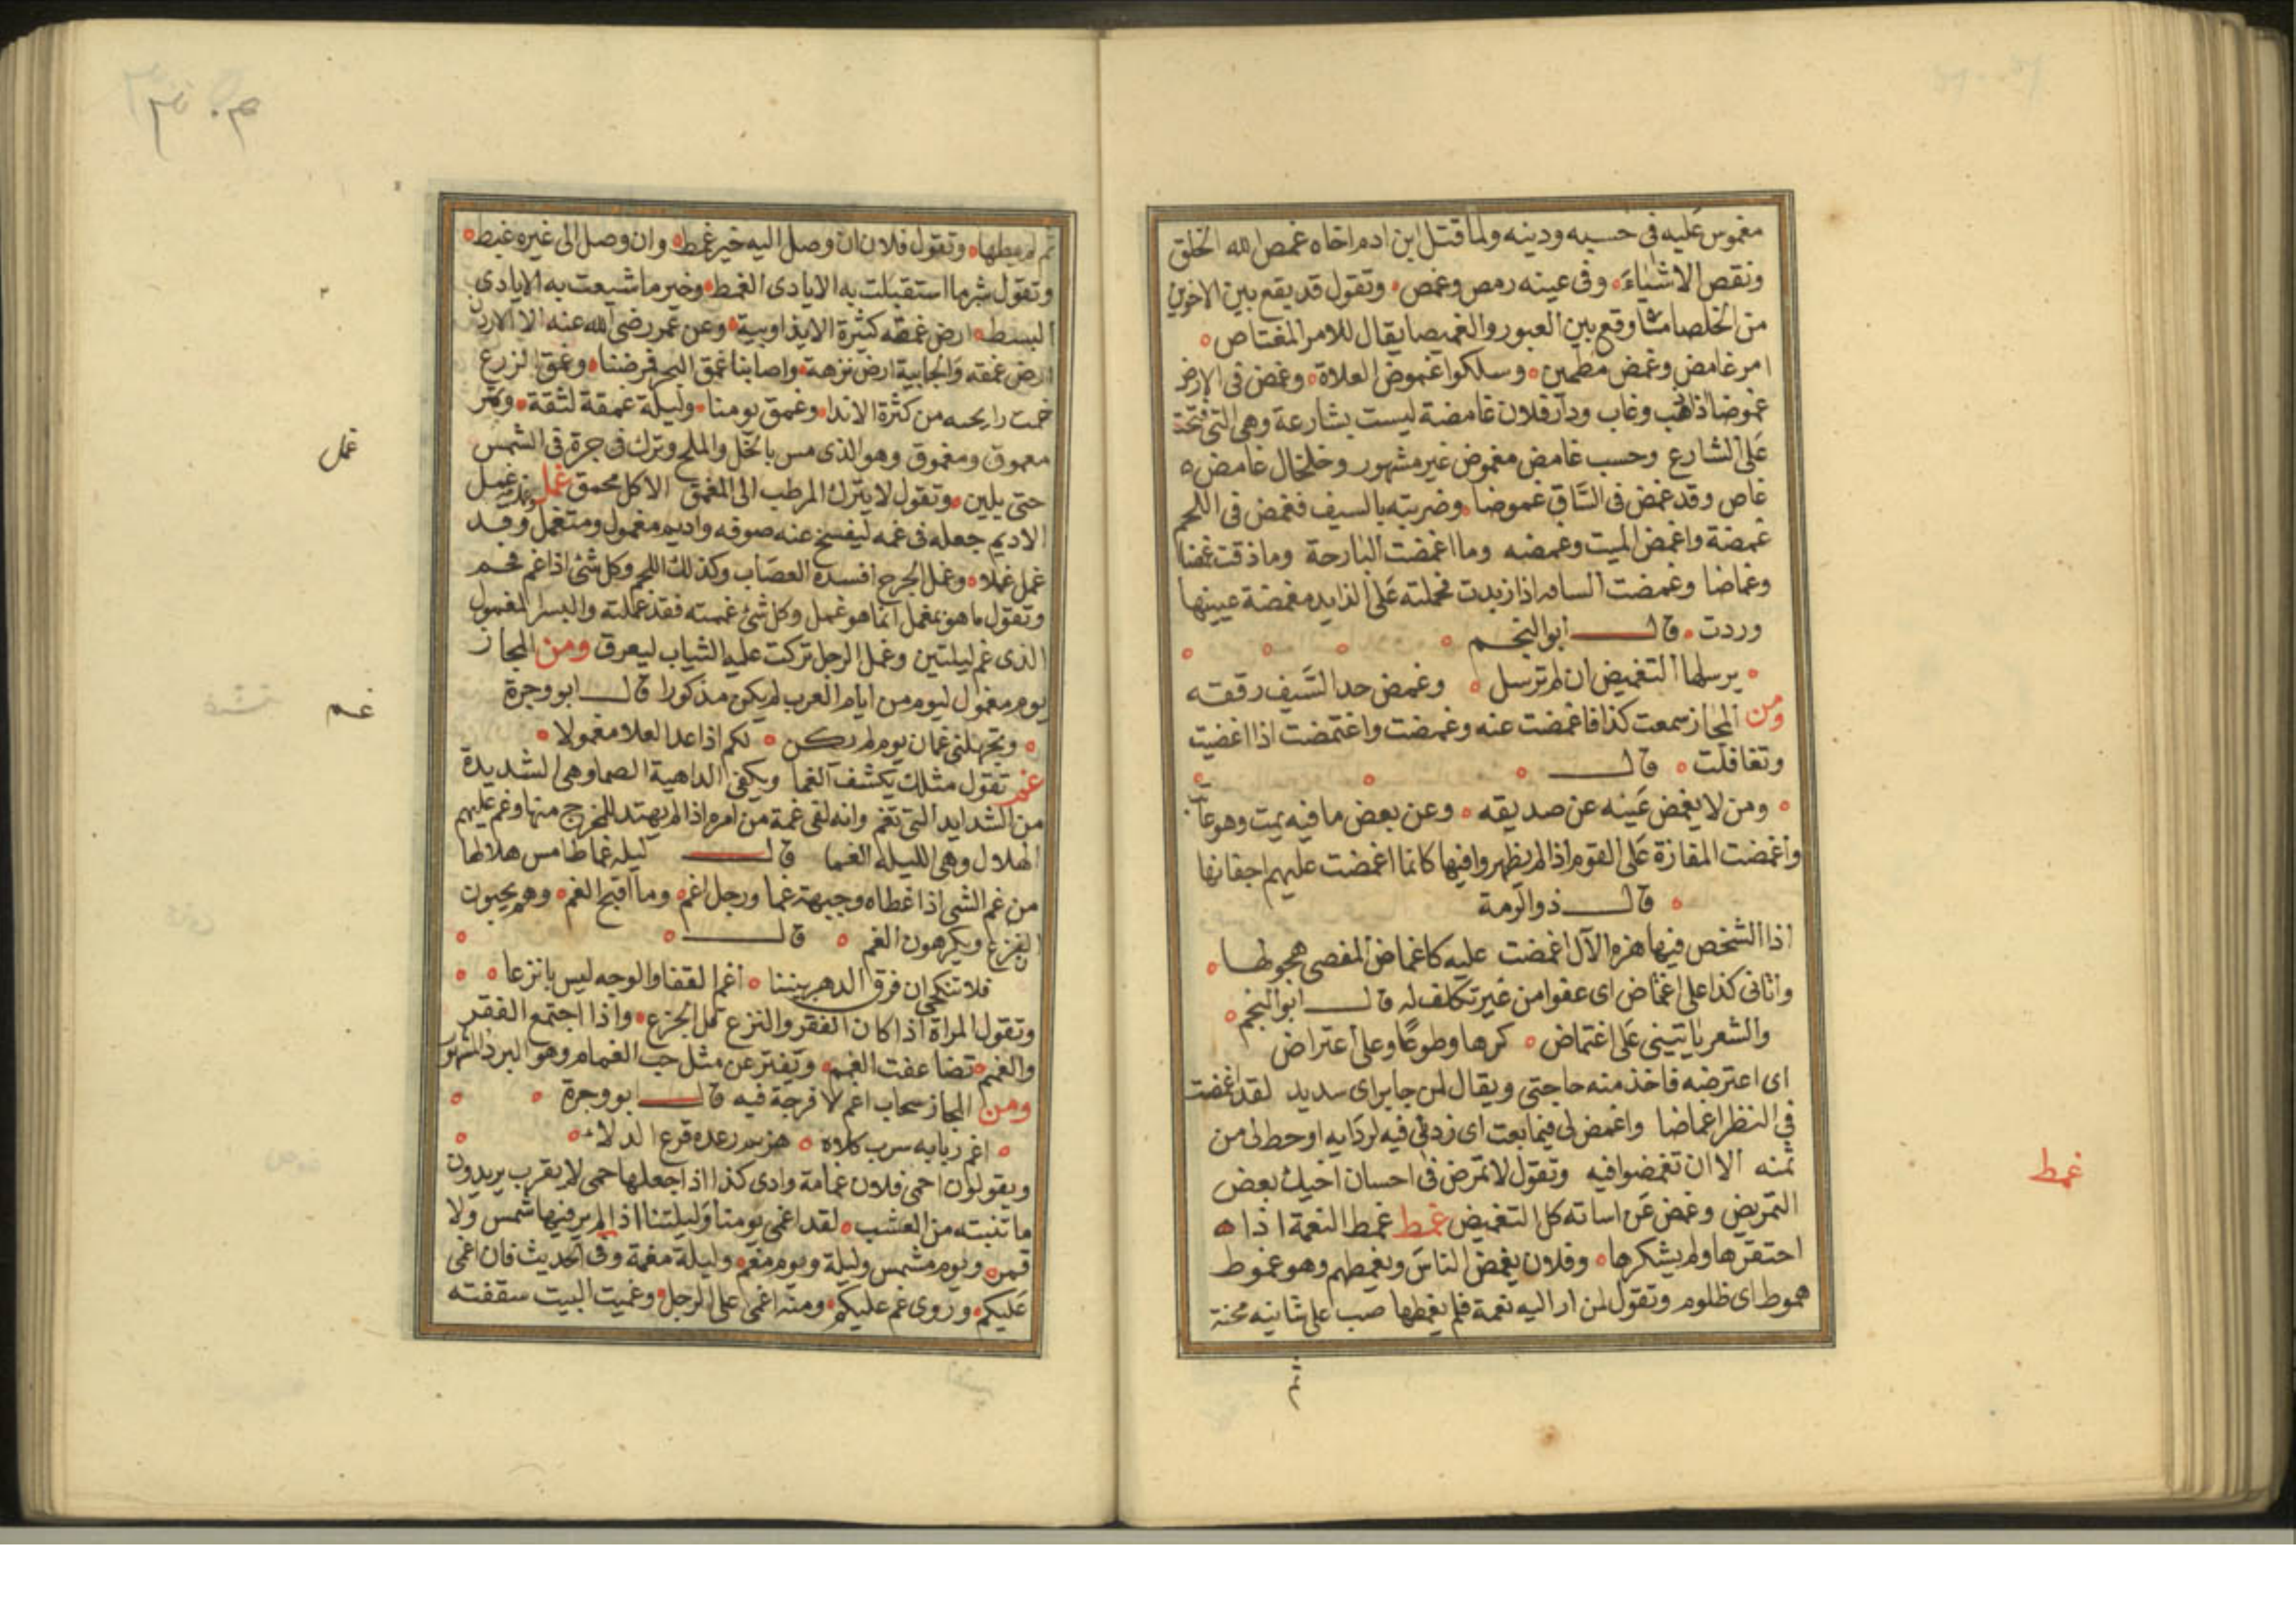 مغموس عليه فى حسبه ودينه ولما قتل ابن ادم اخاه غمص الله الخلق
ونقص الاشياء وفى عينه رمص وغمص وتقول قد يقع بين الاخوين
من الخلصا مثلما وقع بين العبور والغميصا يقال للامر المغتاص
امر غامض وغمض مطمين وسلكوا غموض العلاة وغمض فى الارض
غموضا اذا ذهب وغاب ودار فلان غامضة ليست بشارعة وهى التى تنحت
على الشارع وحسب غامض مغموض غير مشهور وخلخال غامض
غاص وقد غمض فى الساق غموضا وضربته بالسيف فغمض فى اللحم
غمضة واغمض الميت وغمضه وما اغمضت البارحة وما ذقت غمضا
وغماضا وغمضت الساقه اذا زيدت فحملته على الزايد مغمضة عينيها
وردت قال ابو النجم
يرسلها التغميض ان لم ترسل وغمض حد السيف رققه
ومن المجاز سمعت كذا فاغمضت عنه وغمضت واغتمضت اذا اغضيت
وتغافلت قال
ومن لا يغمض عينه عن صديقه وعن بعض ما فيه يمت وهو عاتب
واغمضت المفازة على القوم اذا لم يظهروا فيها كانما اغمضت عليهم اجفانها
قال ذو الرمة
اذا الشخص فيها هزه الآل اغمضت عليه كاغماض المغضى هجولها
واتانى كذا على اغماض اى عفوا من غير تكلف له قال ابو النجم
والشعر ياتينى على اغتماض كرها وطوعا وعلى اعتراض
اى اعترضه فاخذ منه حاجتى ويقال لمن جا براى سديد لقد اغمضت
فى النظر اغماضا واغمض لى فيما بعت اى زدنى فيه لردايه او حط لى من
ثمنه الا ان تغمضوا فيه وتقول لا تمرض فى احسان اخيك بعض
التمريض وغمض عن اساته كل التغميض غمط غمط النعمة اذا
احتقرها ولم يشكرها وفلان يغمض الناس ويغمطهم وهو غموط
هموط اى ظلوم وتقول لمن ازا اليه نعمة فلم يغمطها صب على شانيه محنة
غمط
ثم لم يمطها وتقول فلان ان وصل اليه خير غمط وان وصل الى غيره غبط
وتقول شر ما استقبلت به الايادى الغمط وخير ما شيعت به الايادى
البسط ارض غمقه كثيرة الاندا وبية وعن عمر رضى الله عنه الا الاردن
ارض غمقه والجابية ارض نزهة واصابنا غمق البحر فمرضنا وغمق الزرع
خمت رايحه من كثرة الاندا وغمق يومنا وليلة غمقة لثقة وبسر
معموق ومغموق وهو الذى مس بالخل والملح وترك فى جرة فى الشمس
حتى يلين وتقول لا يترك المرطب الى المغمق الا كل محمق غمل غمل
الاديم جعله فى غمه ليفسخ عنه صوفه واديم مغمول ومتغمل وقد
غمل غملا وغمل الجرح افسده العصاب وكذلك اللحم وكل شئ اذا غم فخم
وتقول ما هو بمغمل انما هو غمل وكل شئ غممته فقد غملته والبسر المغمول
الذى غم ليلتين وغمل الرجل تركت عليه الثياب ليعرق ومن المجاز
يوم مغمول ليوم من ايام العرب لم يكن مذكورا قال ابو وجزة
وتجهلنى غمان يوم لم يكن لكم اذا عد العلا مغمولا
غم تقول مثلك يكشف الغما ويكفى الداهية الصما وهى الشديدة
من الشدايد التى تغم وانه لفى غمة من امره اذا لم يهتد للمخرج منها وغم عليهم
الهلال وهى الليله الغما قال ليله غما طامس هلالها
من غم الشى اذا غطاه وجبهة غما ورجل اغم وما اقبح الغمم وهم يحبون
النزع ويكرهون الغمم قال
فلا تنكحى ان فرق الدهر بيننا اغم القفا والوجه ليس بانزعا
وتقول المراة اذا كان الفقر والنزع قل الجزع واذا اجتمع الفقر
والغمم تضاعفت الغمم وتفتر عن مثل حب الغمام وهو البرد المشهور
ومن المجاز سحاب اغم لا فرجة فيه قال ابو وجزة
ويقولون احمى فلان غمامة وادى كذا اذا جعلها حمى لا يقرب يريدون
ما تنبته من العشب لقد اغمى يومنا وليلتنا اذا لم ير فيها شمس ولا
قمر ويوم مشمس وليلة ويوم مغم وليلة مغمة وفى الحديث فان اغمى
عليكم وروى غم عليكم ومنه اغمى على الرجل وغميت البيت سقفته
غمل
غم